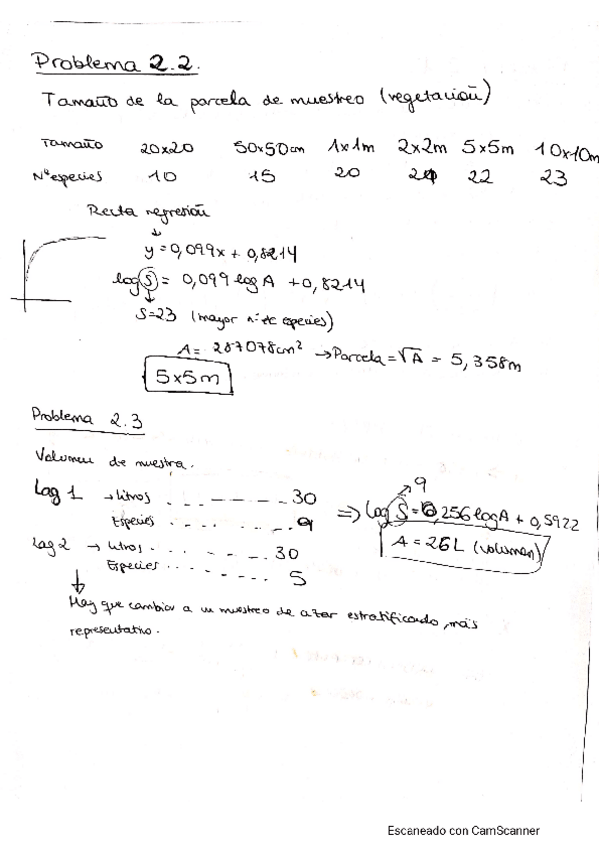 Problema 2.2.
Tamaño de la parcela de muestreo (vegetación)
Tamaño 20x20 50x50cm 1x1m 2x2m 5x5m 10x10m
Nº especies 10 15 20 21 22 23
Recta regresión
y = 0,099x + 0,8214
log S = 0,099 log A + 0,8214
S=23 (mayor nº de especies)
A = 287078cm² → Parcela = √A = 5,358m
5x5m
Problema 2.3
Volumen de muestra.
Lag 1 → litros - - - - - - - 30
Especies - - . . . . . . 9
⇒ log S = 0,256 log A + 0,5922
9
A = 26L (volumen)
Lag 2 → litros . . . - - - . 30
Especies . . . . - - - . 5
Hay que cambiar a un muestreo de azar estratificado, más
representativo.
Escaneado con CamScanner